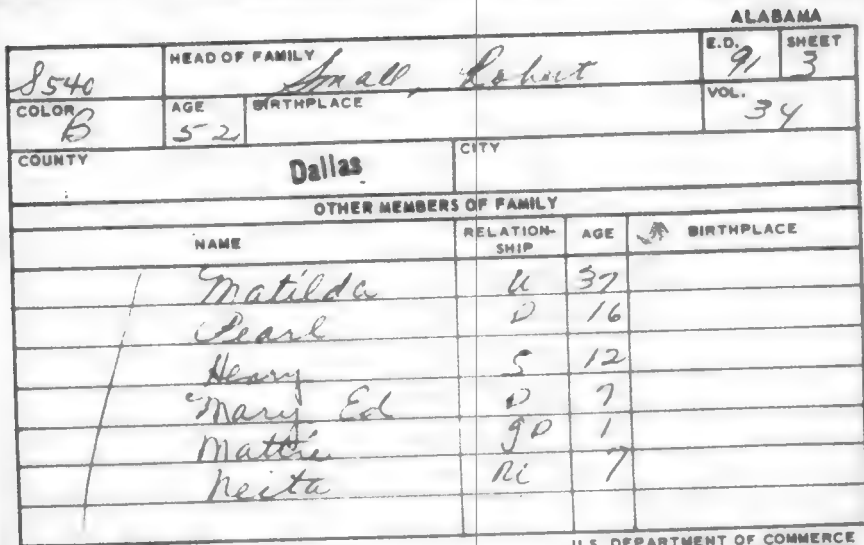 ALABAMA
S540 HEAD OF FAMILY Small, Robert E.D. 91 SHEET 3
COLOR B AGE 52 BIRTHPLACE VOL. 34
COUNTY Dallas CITY
OTHER MEMBERS OF FAMILY
NAME RELATION-SHIP AGE BIRTHPLACE
Matilda 37
Pearl D 16
Henry S 12
Mary Ed D 7
Mattie gD 1
Neita Ni 7
U.S. DEPARTMENT OF COMMERCE